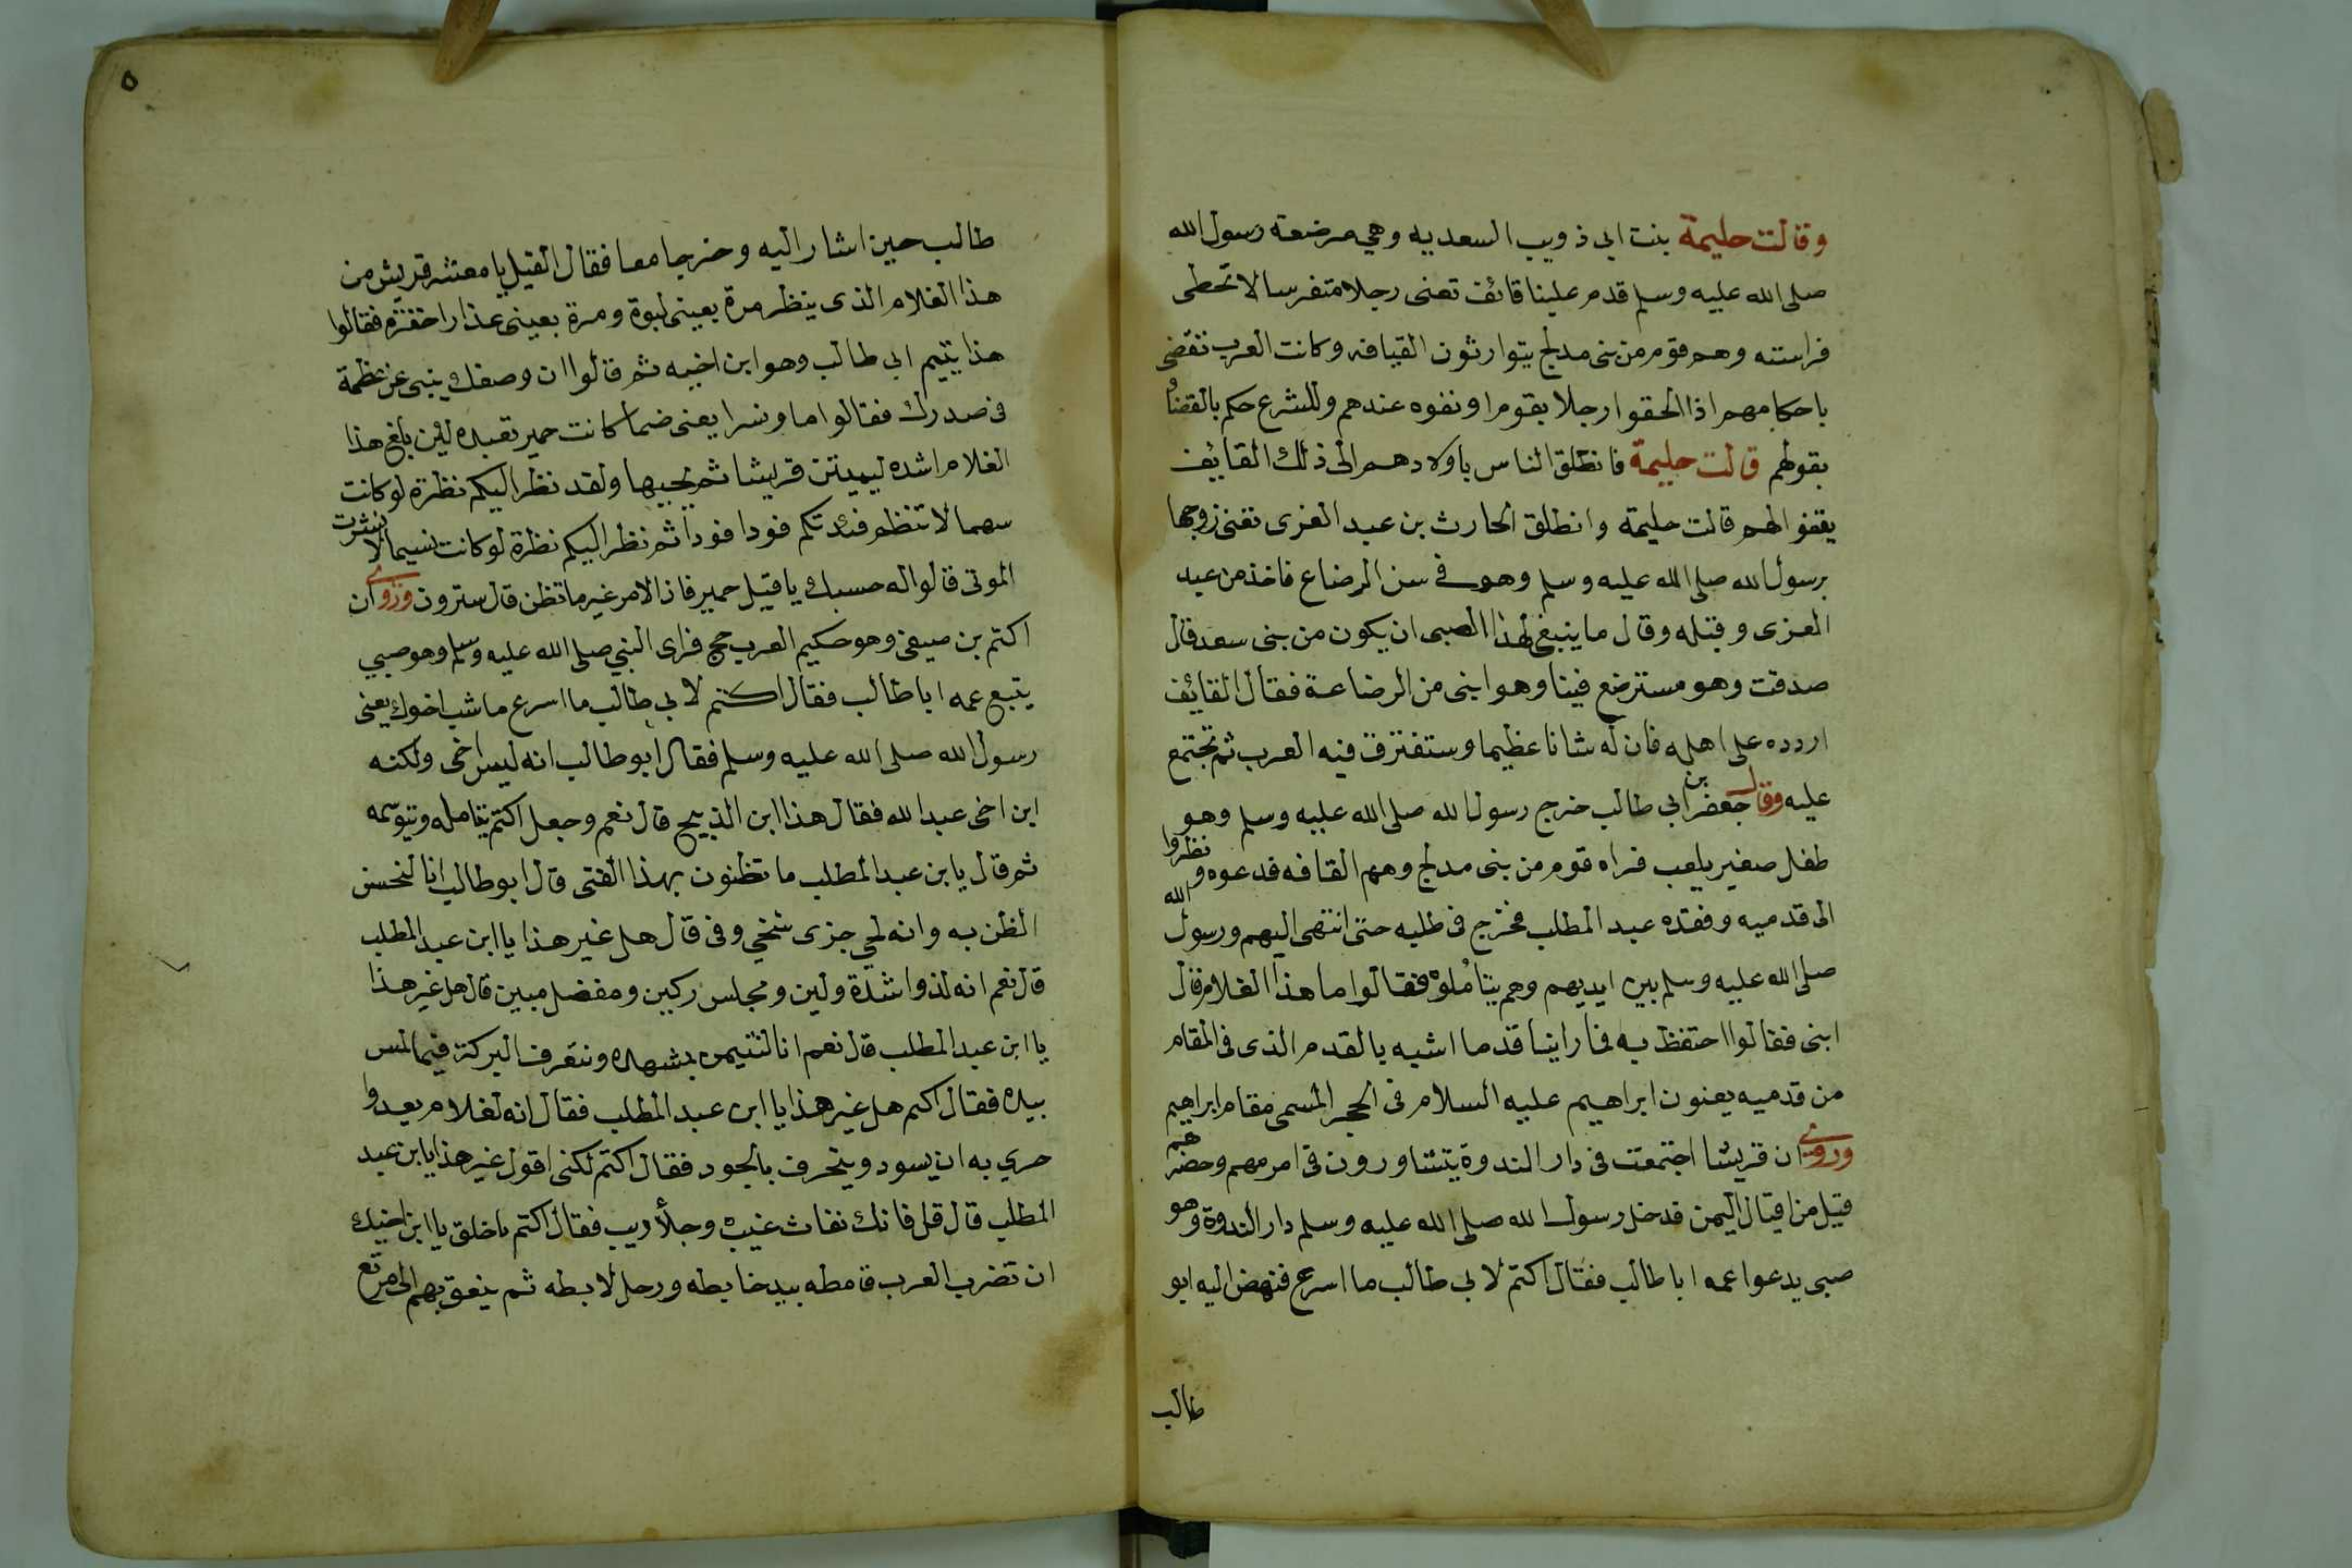 وقالت حليمة بنت ابى ذويب السعديه وهي مرضعة رسول الله
صلى الله عليه وسلم قدم علينا قائف تعنى رجلا متفرسا لا تخطى
فراسته وهم قوم من بنى مدلج يتوارثون القيافه وكانت العرب تقضى
باحكامهم اذا الحقوا رجلا بقوم او نفوه عندهم وللشرع حكم بالقضاء
بقولهم قالت حليمة فانطلق الناس باولادهم الى ذلك القايف
يقفوا لهم قالت حليمة وانطلق الحارث بن عبد العزى تعنى زوجها
برسول الله صلى الله عليه وسلم وهو فى سن الرضاع فاخذه من عبد
العزى وقبله وقال ما ينبغى لهذا الصبى ان يكون من بنى سعد قال
صدقت وهو مسترضع فينا وهو ابنى من الرضاعة فقال القائف
اردده على اهله فان له شانا عظيما وستفترق فيه العرب ثم تجتمع
عليه وقال جعفر بن ابى طالب خرج رسول الله صلى الله عليه وسلم وهو
طفل صغير يلعب فراه قوم من بنى مدلج وهم القافه فدعوه ونظروا
الى قدميه وفقده عبد المطلب فخرج فى طلبه حتى انتهى اليهم ورسول الله
صلى الله عليه وسلم بين ايديهم وهم يتاملوه فقالوا ما هذا الغلام قال
ابنى فقالوا احتفظ به فما راينا قدما اشبه بالقدم الذى فى المقام
من قدميه يعنون ابراهيم عليه السلام فى الحجر المسمى مقام ابراهيم
وروى ان قريشا اجتمعت فى دار الندوة يتشاورون فى امر مهم وحضرهم
قيل من اقيال اليمن فدخل رسول الله صلى الله عليه وسلم دار الندوة وهو
صبى يدعوا عمه ابا طالب فقال اكتم لابى طالب ما اسرع فنهض اليه ابو
طالب
٥
طالب حين اشار اليه وخرجا معا فقال القيل يا معشر قريش من
هذا الغلام الذى ينظر مرة بعينى لبوة ومرة بعينى عذرا خفرة فقالوا
هذا يتيم ابى طالب وهو ابن اخيه ثم قالوا ان وصفك ينبى عن عظمة
فى صدرك فقالوا اما ونسرا يعنى ضما كانت حمير تعبده لئن بلغ هذا
الغلام اشده ليميتن قريشا ثم يحييها ولقد نظر اليكم نظرة لو كانت
سهما لانتظم فئدتكم فودا فودا ثم نظر اليكم نظرة لو كانت نسيما لانشرت
الموتى قالوا له حسبك يا قيل حمير فان الامر غير ما تظن قال سترون وروى ان
اكتم بن صيفى وهو حكيم العرب حج فراى النبي صلى الله عليه وسلم وهو صبي
يتبع عمه ابا طالب فقال اكتم لابي طالب ما اسرع ما شب اخوك يعنى
رسول الله صلى الله عليه وسلم فقال ابو طالب انه ليس اخى ولكنه
ابن اخى عبد الله فقال هذا ابن الذبيح قال نعم وجعل اكتم يتامله ويتوسمه
ثم قال يابن عبد المطلب ما تظنون بهذا الفتى قال ابو طالب انا لنحسن
الظن به وانه لحي جزى سخي وفى قال هل غير هذا يا ابن عبد المطلب
قال نعم انه لذوا شدة ولين ومجلس ركين ومفضل مبين قال هل غير هذا
يا ابن عبد المطلب قال نعم انا لنتيمن بمشهده ونتعرف البركة فيما لمس
بيده فقال اكتم هل غير هذا يا ابن عبد المطلب فقال انه لغلام يعدوا
حري به ان يسود ويتحرف بالجود فقال اكتم لكنى اقول غير هذا يابن عبد
المطلب قال قل فانك نفاث غيب وجلا ريب فقال اكتم ما خلق يا ابن اخيك
ان تضرب العرب قامطه بيد خابطه ورجل لابطه ثم ينعق بهم الى مرتع